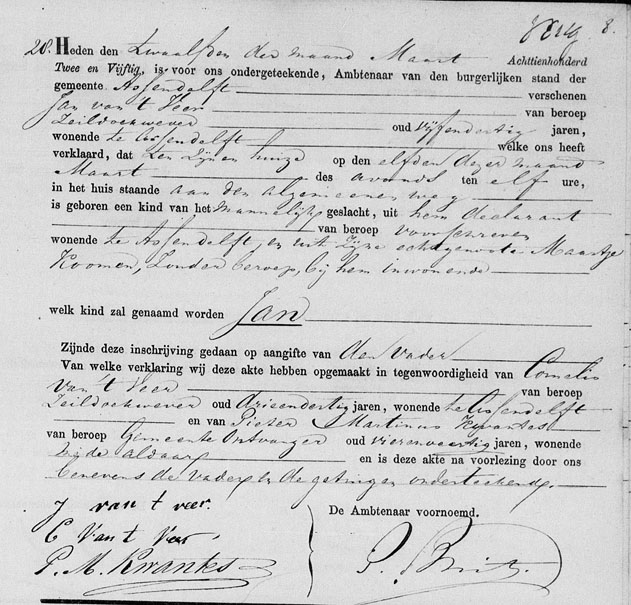 8.
28. Heden den twaalfden der maand Maart Achttienhonderd
Twee en Vijftig, is voor ons ondergeteekende, Ambtenaar van den burgerlijken stand der
gemeente Assendelft verschenen
Jan van 't Veer van beroep
Zeildoekwever oud vijfendertig jaren,
wonende te Assendelft welke ons heeft
verklaard, dat ten zijnen huize op den elfden dezer maand
Maart des avonds ten elf ure,
in het huis staande aan den algemeenen weg
is geboren een kind van het mannelijk geslacht, uit hem declarant
van beroep voorschreven
wonende te Assendelft, en uit zijne echtgenoote Maartje
Koomen, zonder beroep, bij hem inwonende
welk kind zal genaamd worden Jan
Zijnde deze inschrijving gedaan op aangifte van den vader
Van welke verklaring wij deze akte hebben opgemaakt in tegenwoordigheid van Cornelis
van 't Veer van beroep
Zeildoekwever oud drieendertig jaren, wonende te Assendelft
en van Pieter Martinus Kwantes
van beroep Gemeente Ontvanger oud vierenveertig jaren, wonende
beide aldaar en is deze akte na voorlezing door ons
benevens de vader en de getuigen onderteekend.
J van t veer.
C Van t Veer
P. M. Kwantes
De Ambtenaar voornoemd.